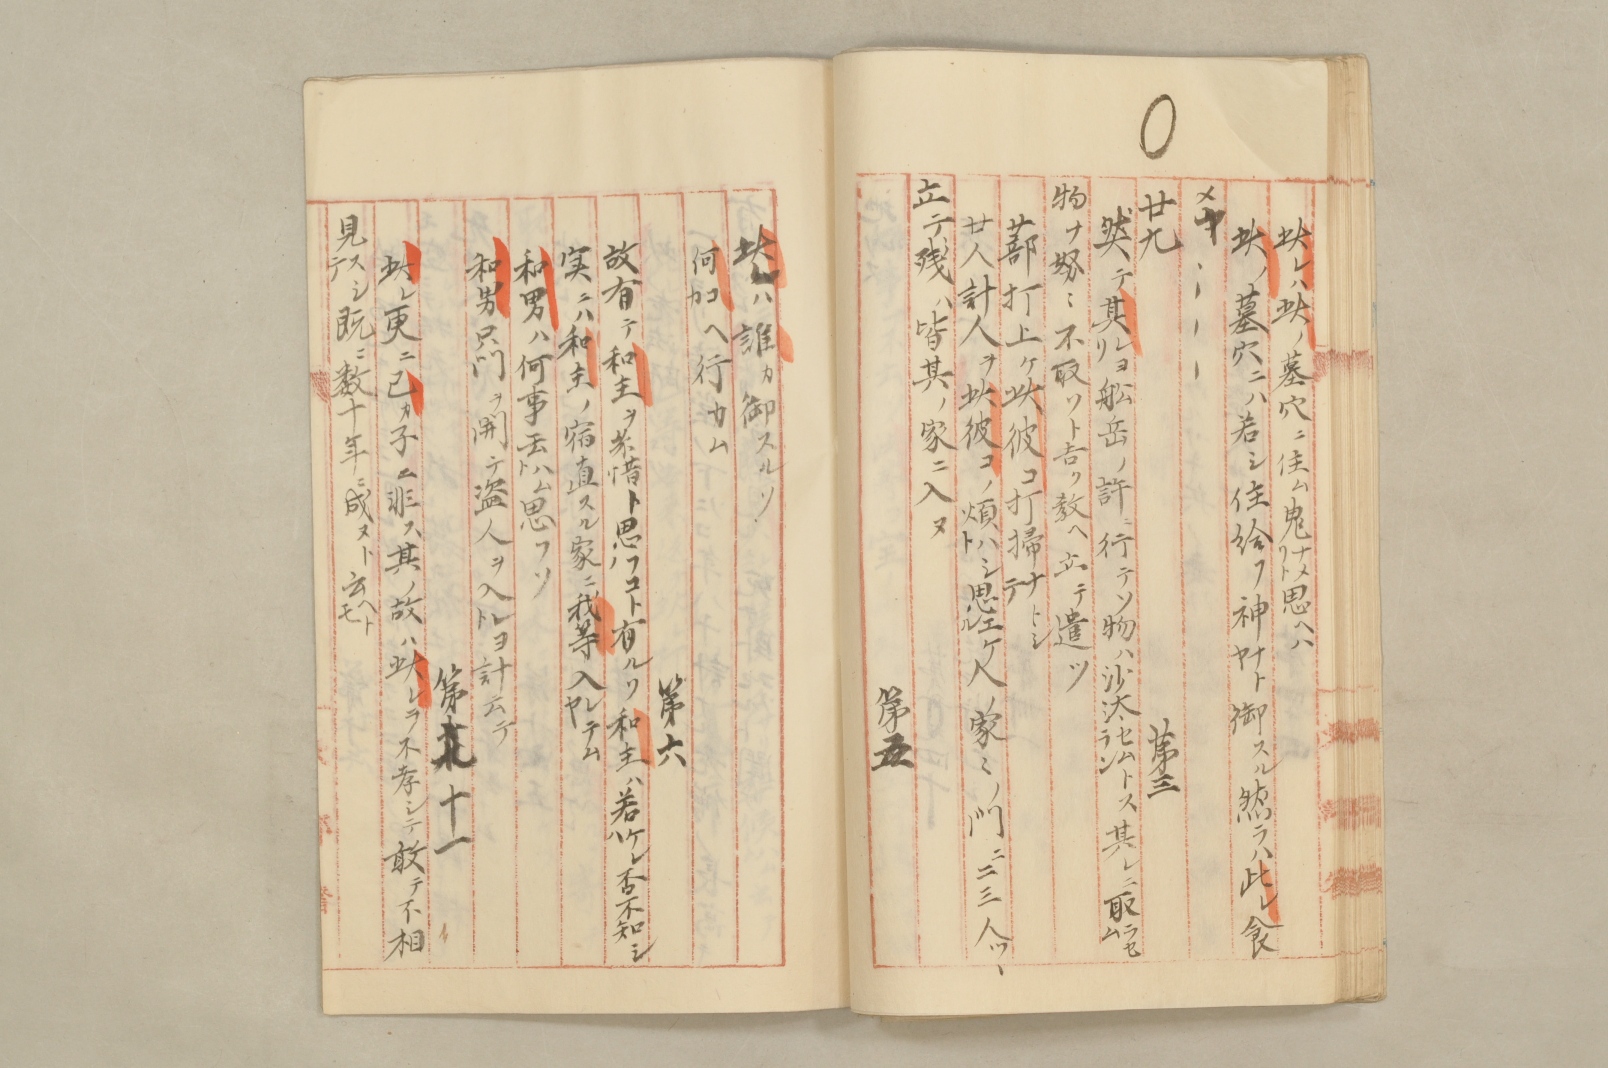 此レハ此ノ墓穴ニ住ム鬼ナメリト思ヘハ
此ノ墓穴ニハ若シ住給フ神ナトヤ御スル然ラハ此レ食
廿九
第三
然テ其レヨリ船岳ノ許ニ行テソ物ハ沙汰セムトス其レニ取ラセム
物ナ努〻不取ソト吉ク教ヘ立テ遣ツ
蔀打上ケ此彼コ打掃ナトシテ
廿人計人ヲ此彼コノ煩ハシト思エケル人ノ家〻ノ門ニ二三人ツヽ
立テ残ハ皆其ノ家ニ入ヌ
第五
此レハ誰カ御スルソ
何コヘ行カム
第六
故有テ和主ヲ糸惜ト思フコト有ルソ和主ハ若ケレハ否不知シ
実ニハ和主ノ宿直スル家ニ我等入レテムヤ
和男ハ何事云ハムト思フソ
和男只門ヲ開テ盗人ヲ入レヨト計云テ
第十一
此レ更ニ己カ子ニ非ス其ノ故ハ此レラ不孝シテ敢テ不相
見スシテ既ニ数十年ニ成ヌト云ヘトモ